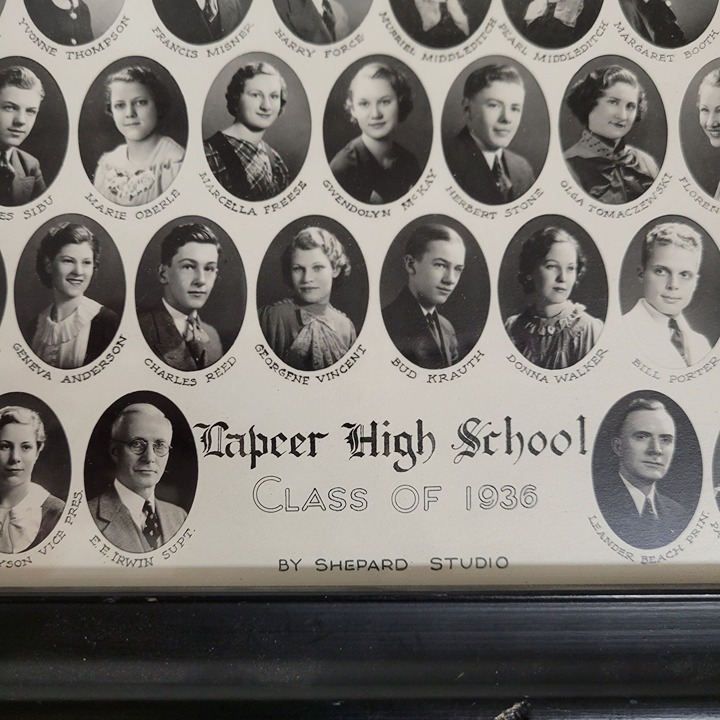 YVONNE THOMPSON FRANCIS MISNER HARRY FORCE MURRIEL MIDDLEDITCH PEARL MIDDLEDITCH MARGARET BOOTH
ES SIBU MARIE OBERLE MARCELLA FREESE GWENDOLYN McKAY HERBERT STONE OLGA TOMACZEWSKI FLOREN
GENEVA ANDERSON CHARLES REED GEORGENE VINCENT BUD KRAUTH DONNA WALKER BILL PORTER
Lapeer High School
CLASS OF 1936
YSON VICE PRES. E.E. IRWIN SUPT. LEANDER BEACH PRIN.
BY SHEPARD STUDIO